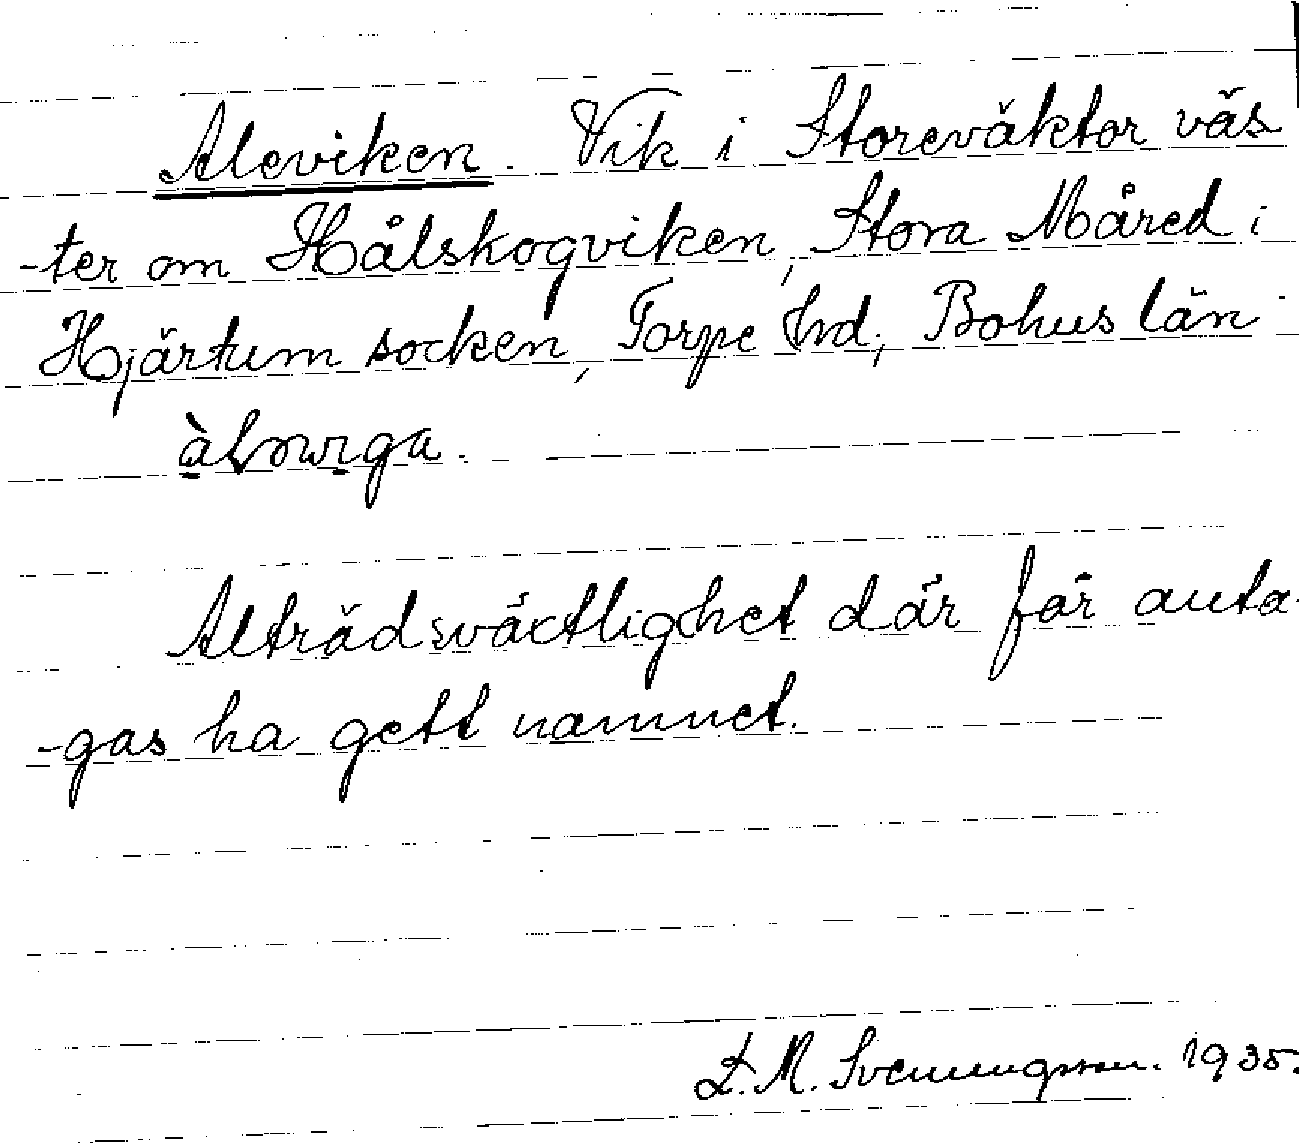 Aleviken. Vik i Storeväktor väs
-ter om Hålskogviken, Stora Måred i
Hjärtum socken, Torpe hrd, Bohus län
Alträdsväxtlighet där får anta-
-gas ha gett namnet.
L. M. Svenningsson. 1935.